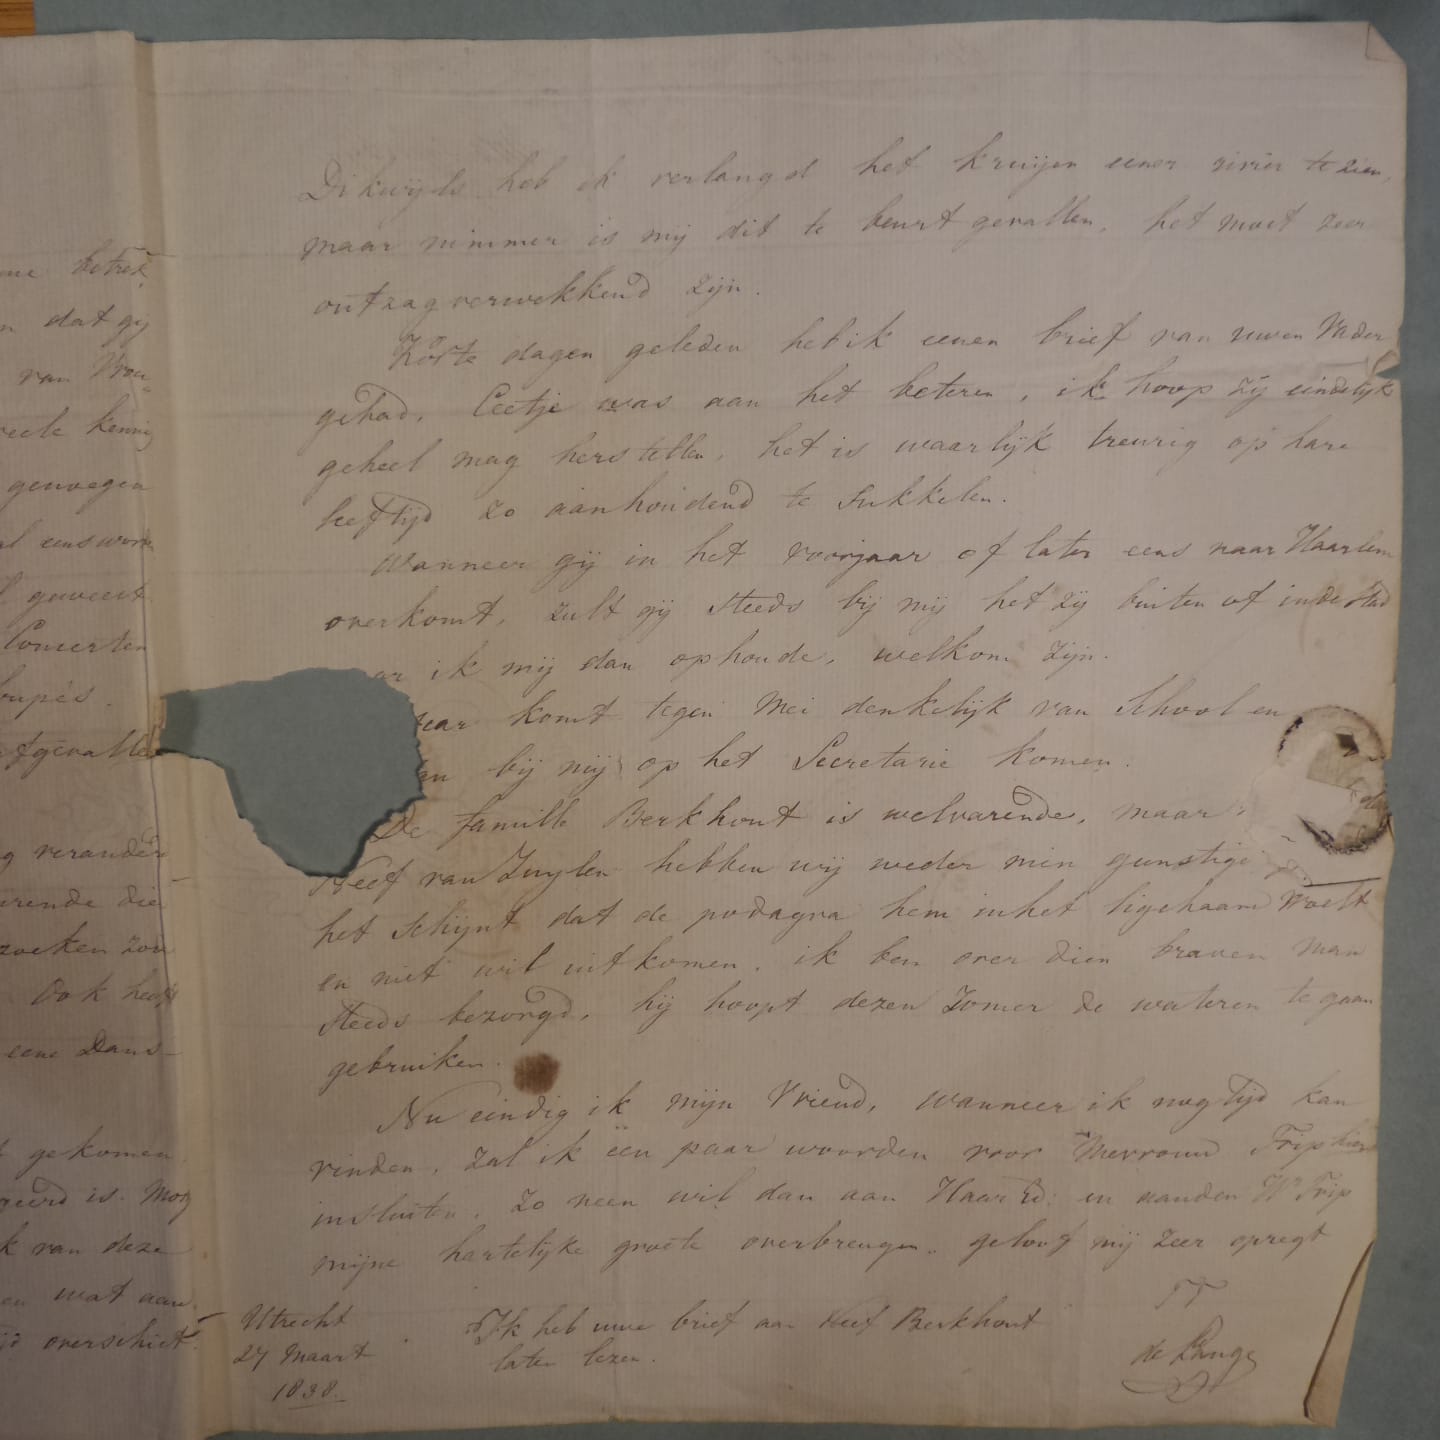 me betrek,
n dat gij
van Vrou-
reele kennis
genoegen
al eens
l geweest
Concerten
Coupés.
afgevallen
g verander
urende die
zoeken zou
Ook heeft
eene Dans-
t gekomen
geerd is. Mog
k van deze
en wat aan-
ijd overschiet
Dikwijls heb ik verlangd het kruijen eener rivier te zien,
maar nimmer is mij dit te beurt gevallen, het moet zeer
ontzagverwekkend zijn.
Korte dagen geleden heb ik eenen brief van uwen Vader
gehad, Ceetje was aan het beteren, ik hoop zij eindelijk
geheel mag herstellen, het is waarlijk treurig op hare
leeftijd zo aanhoudend te sukkelen.
Wanneer gij in het voorjaar of later eens naar Haarlem
overkomt, zult gij steeds bij mij het zij buiten of in de stad
ar ik mij dan ophoude, welkom zijn.
komt tegen Mei denkelijk van School en
an bij mij op het Secretarie komen.
De familie Berkhout is welvarende, maar
Neef van Zuylen hebben wij weder min gunstige
het schijnt dat de podagra hem in het ligchaam woelt
en niet wil uitkomen, ik ben over dien braven man
steeds bezorgd, hij hoopt dezen Zomer de wateren te gaan
gebruiken.
Nu eindig ik mijn Vriend, wanneer ik nog tijd kan
vinden, zal ik een paar woorden voor Mevrouw Trip hier
insluiten, Zo neen wil dan aan Haar Ed: en aan den Hr Trip
mijne hartelijke groete overbrengen, geloof mij zeer opregt
TT
de Lange
Utrecht
27 Maart
1838.
Ik heb uwe brief aan Neef Berkhout
laten lezen.